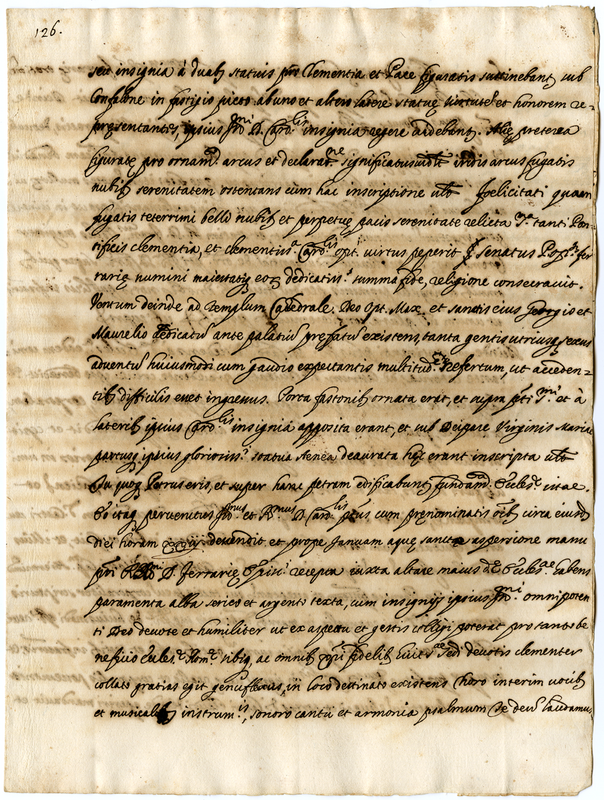 126.
seu insignia à duab; statuis pro Clementia et Pace figuratis sustinebant sub
Confalone in fastigio picto ab uno et altero latere statuę virtutē et honorem re=
pręsentantes, ipsius Ill.mi D. Card.lis insignia regere ardebant. Alię preterea
figuratę pro ornam.to arcus et declarat.ne significatus iridis arcus fugatis
nubib; serenitatem ostentans cum hac inscriptione felicitati quam
fugatis teterrimi belli nubib; et perpetuę pacis serenitate relicta tanti Pon=
tificis clementia, et clementiss.i Card.lis opt. virtus peperit senatus Pop.
rarię numini maiestatiq; eor; dedicatiss. summa fide, religione consecravit.
Ventum deinde ad Templum Cathedrale Deo Opt. Max. et sanctis eius Georgio et
Maurelio dedicatū ante palatiū prefatū existens, tanta gentis utriusq; sexus
adventū huiusmodi cum gaudio expectantis multitud.e refertum, ut acceden=
tib; difficilis esset ingressus. Porta fastonib; ornata erat, et supra et à
laterib; ipsius Card.lis insignia apposita erant, et sub Deiparę Virginis Marię
partusq; ipsius gloriosiss. statua Aenea deaurata hęc erant inscripta
Tu quoq; Petrus eris, et super hanc petram edificabunt fundam. Eccles. itae.
Eo itaq; perventus Ill.mus et R.mus D. Card.lis cum prenominatis circa eiusdē
diei horam descendit et prope Januam aquę sanctę aspersione manu
D. Ferrarię receptus iuxta altare maius Eccles.ae habens
paramenta alba serico et argento texta, cum insignijs ipsius Ill.mi omnipoten
ti Deo devote et humiliter ut ex aspectu et gestis colligi poterat pro tanto be
neficio Eccles.e Rom.e sibiq; ac omnib; fidelib; devotis clementer
collato gratias egit genuflexus, in loco destinato existens Choro interim vocib;
et musicalib; instrum.is, sonoro cantu et armonia psalmum Te deū laudamus